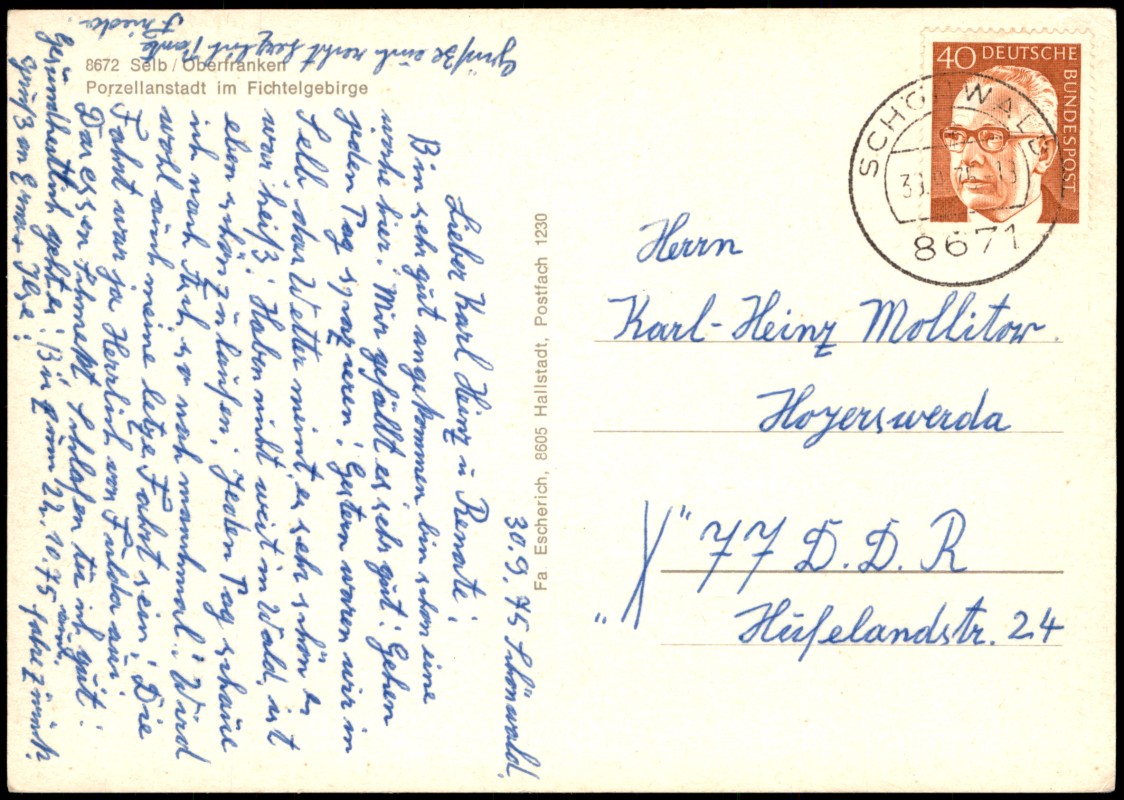 8672 Selb / Oberfranken
Porzellanstadt im Fichtelgebirge
30.9.75 Schönwald,
Lieber Karl Heinz u Renate!
Bin sehr gut angekommen, bin schon eine
woche hier. Mir gefällt es sehr gut! Gehen
jeden Tag spazieren! Gestern waren wir in
Selb das Wetter meint es sehr schön es
war heiß! Haben nicht weit im Wald, ist
eben schön zu laufen. Jeden Tag schaue
ich nach Asch, so noch manchmal! Wird
wohl auch meine letze Fahrt sein! Die
Fahrt war ja Herrlich von Fulda aus!
Das essen schmekt schlafen tu ich gut!
Gesundheitlich geht es! Bis zum 22.10.75 fahre zurück
gruß an Ilse!
Grüße euch recht herzlich Tante
Frieda
Fa. Escherich, 8605 Hallstadt, Postfach 1230
40 DEUTSCHE
BUNDESPOST
SCHÖNWALD
8671
Herrn
Karl-Heinz Mollitor.
Hoyerswerda
"X" 77 D. D. R
Hufelandstr. 24